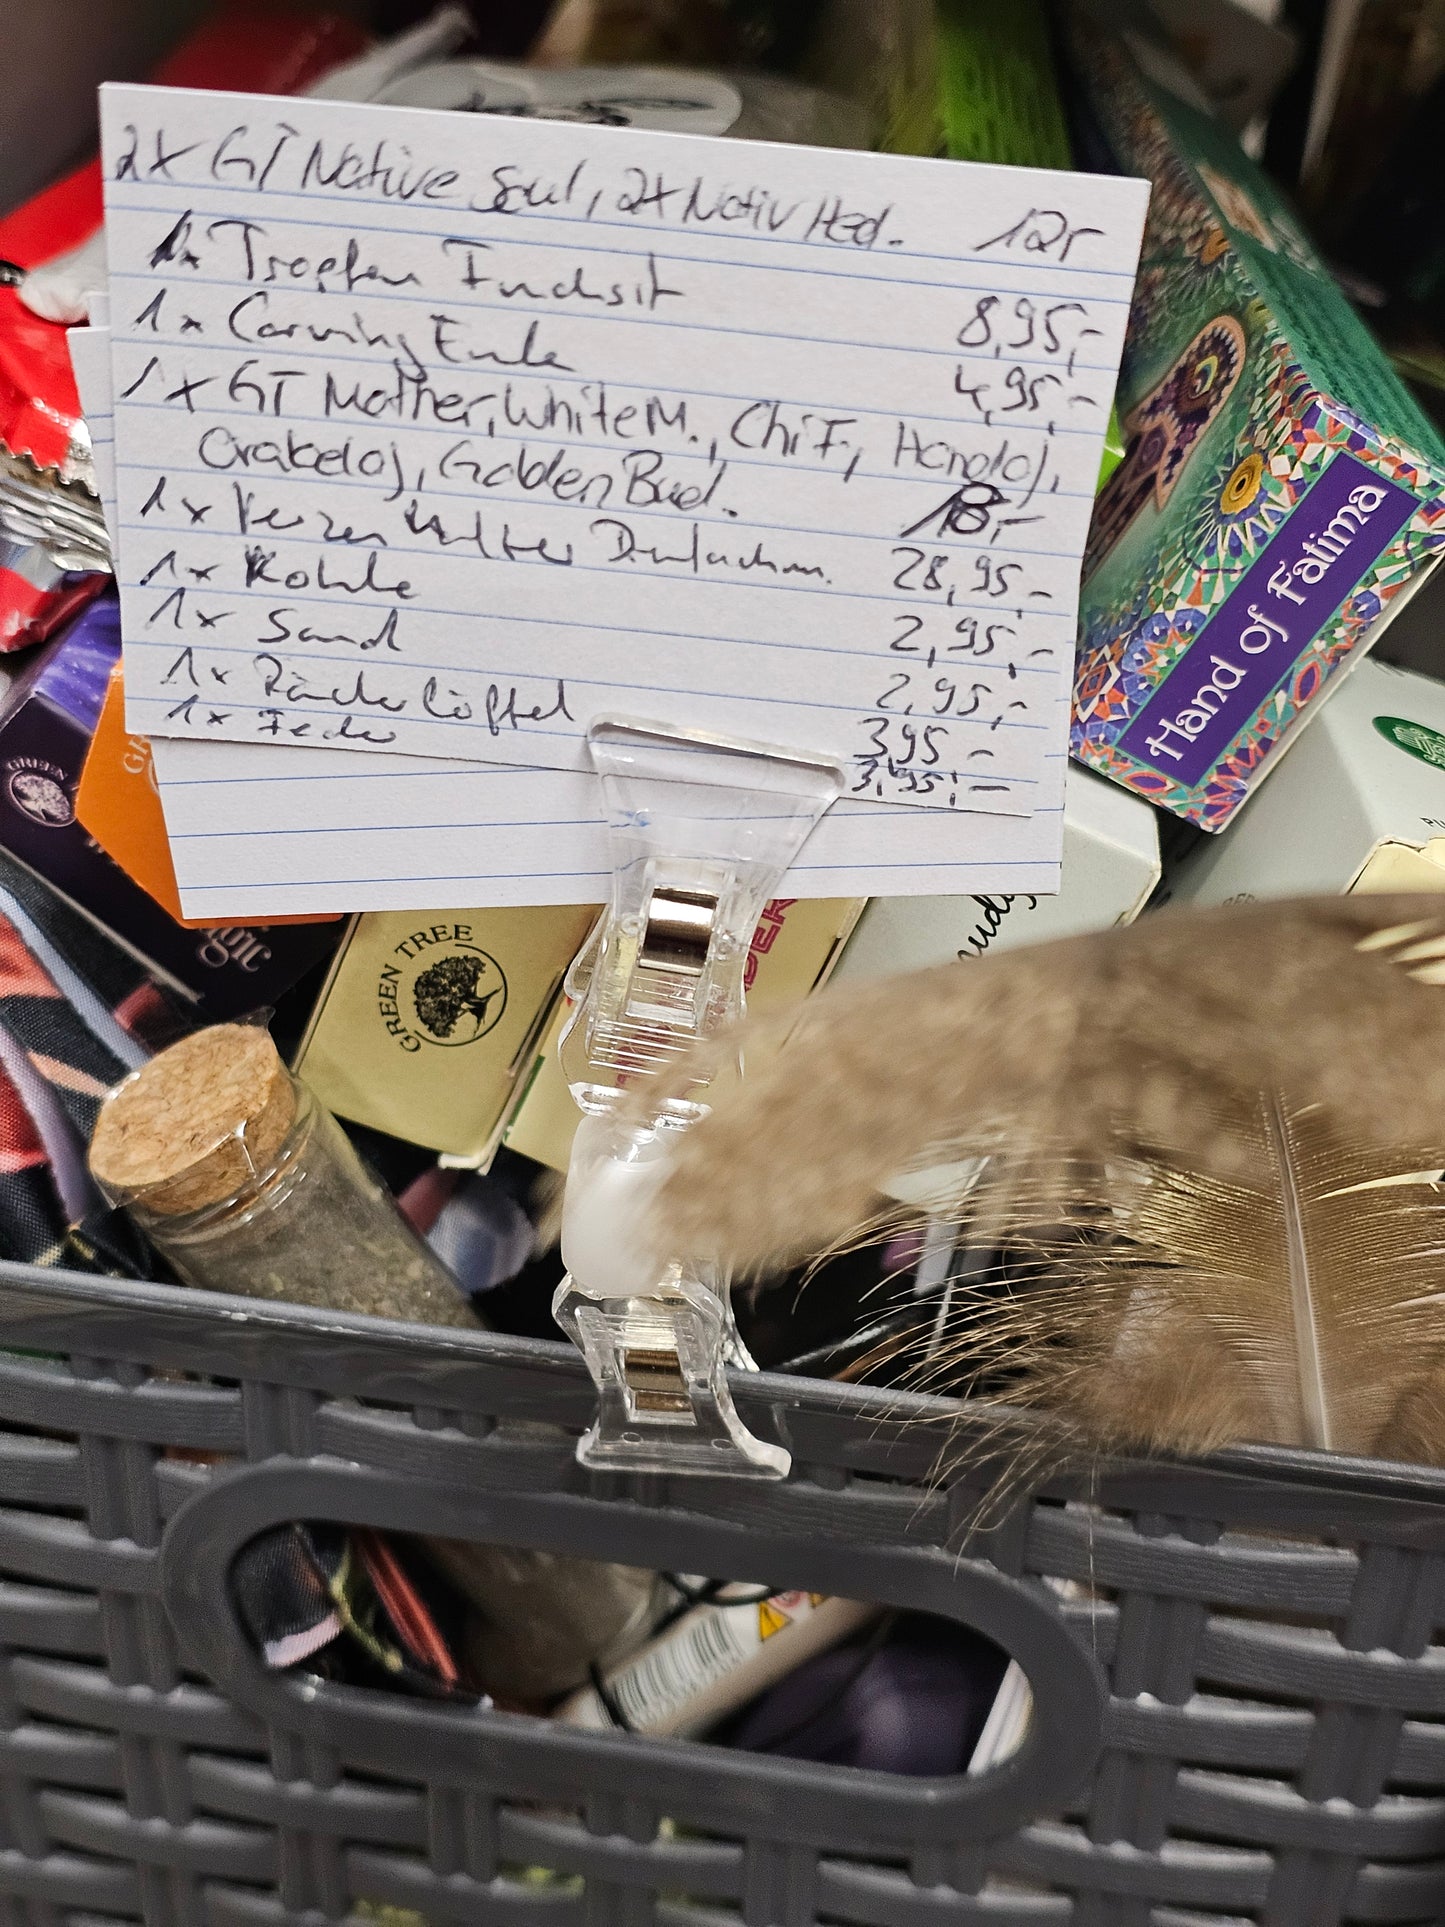 2x GT Native Soul, 2x Nativ Med. 12,-
1x Tropfen Fuchsit 8,95,-
1x Carving Eule 4,95,-
1x GT Mother, White M., Chi F,
Orakeloj, Golden Bud. 18,-
1x Kerzenhalter 28,95,-
1x Kohle 2,95,-
1x Sand 2,95,-
1x Räucherlöffel 3,95 -
1x Feder 3,95,-
Hand of Fatima
GREEN
GREEN TREE